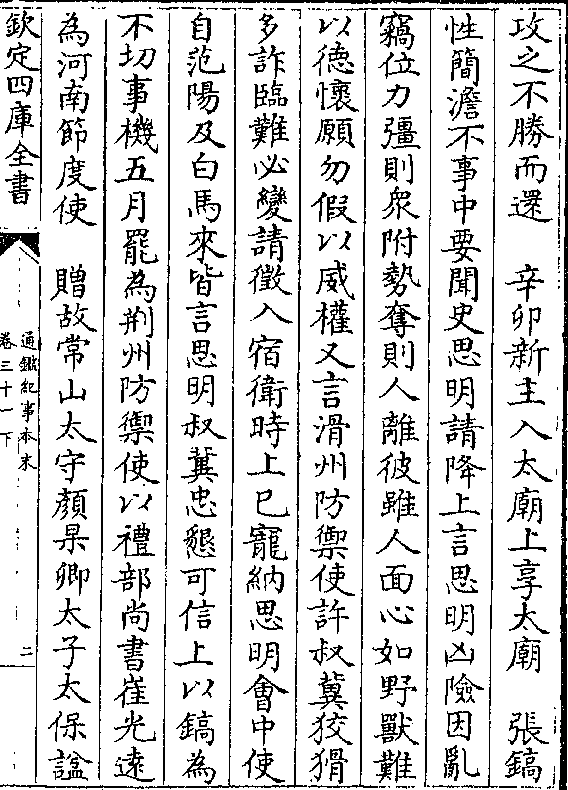 攻之不勝而還　辛卯新主入太廟上享太廟　張鎬
性簡澹不事中要聞史思明請降上言思明凶險因亂
竊位力彊則衆附勢奪則人離彼雖人面心如野獸難
以德懷願勿假以威權又言滑州防禦使許叔冀狡猾
多詐臨難必變請徵入宿衛時上已寵納思明會中使
自范陽及白馬來皆言思明叔冀忠懇可信上以鎬為
不切事機五月罷為荆州防禦使以禮部尚書崔光逺
為河南節度使　贈故常山太守顏杲卿太子太保諡
欽定四庫全書
通鑑紀事本末
卷三十一下
二